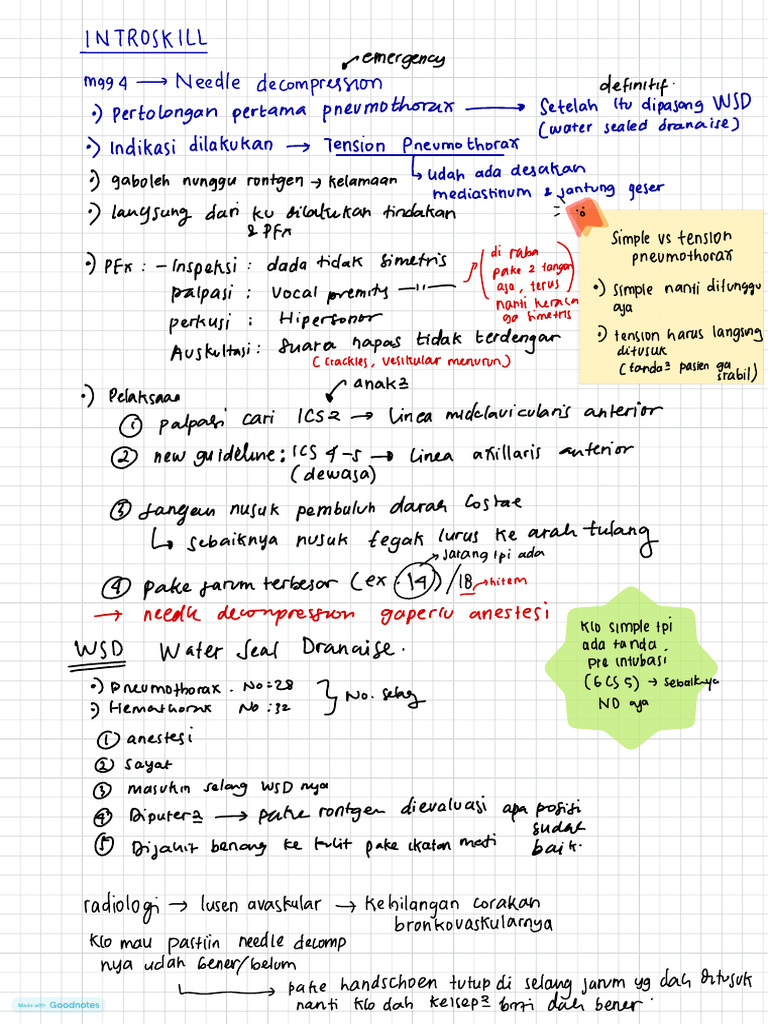 INTROSKILL
emergency
mgg 4 → Needle decompression
•) Pertolongan pertama pneumothorax → Setelah itu dipasang WSD
definitif.
(water sealed dranaise)
•) Indikasi dilakukan → Tension Pneumothorax
udah ada desakan
mediastinum & jantung geser
•) gaboleh nunggu rontgen → kelamaan
•) langsung dari ku dilakukan tindakan
& PFx
•) PFx : - Inspeksi : dada tidak simetris
palpasi : vocal premitus — 11 —
(di raba
pake 2 tangan
aja, terus
nanti kerasa
ga simetris)
perkusi : Hipersonor
Auskultasi : suara napas tidak terdengar
(crackles, vesikular menurun)
Simple vs tension
pneumothorax
•) simple nanti ditunggu
aja
•) tension harus langsung
ditusuk
(tanda2 pasien ga
stabil)
•) Pelaksaaa
anak2
① palpasi cari ICS2 → Linea midclavicularis anterior
② new guideline : ICS 4-5 → Linea axillaris anterior
(dewasa)
③ jangan nusuk pembuluh darah costae
↳ sebaiknya nusuk tegak lurus ke arah tulang
④ pake jarum terbesar (ex. 14) / 18 → hitem
jarang tpi ada
→ needle decompression gaperlu anestesi
klo simple tpi
ada tanda
pre intubasi
(GCS 5) → sebaiknya
ND aja
WSD Water Seal Dranaise.
•) Pneumothorax . No : 28
•) Hemathorax No : 32
} No. selang
① anestesi
② sayat
③ masukin selang WSD nya
④ Diputer2 → pake rontgen dievaluasi apa posisi
sudah
baik.
⑤ Dijahit benang ke kulit pake ikatan mati
radiologi → lusen avaskular → kehilangan corakan
bronkovaskularnya
klo mau pastiin needle decomp
nya udah bener/belum
→ pake handschoen tutup di selang jarum yg dah ditusuk
nanti klo dah kelsep2 brti dah bener.
Made with Goodnotes